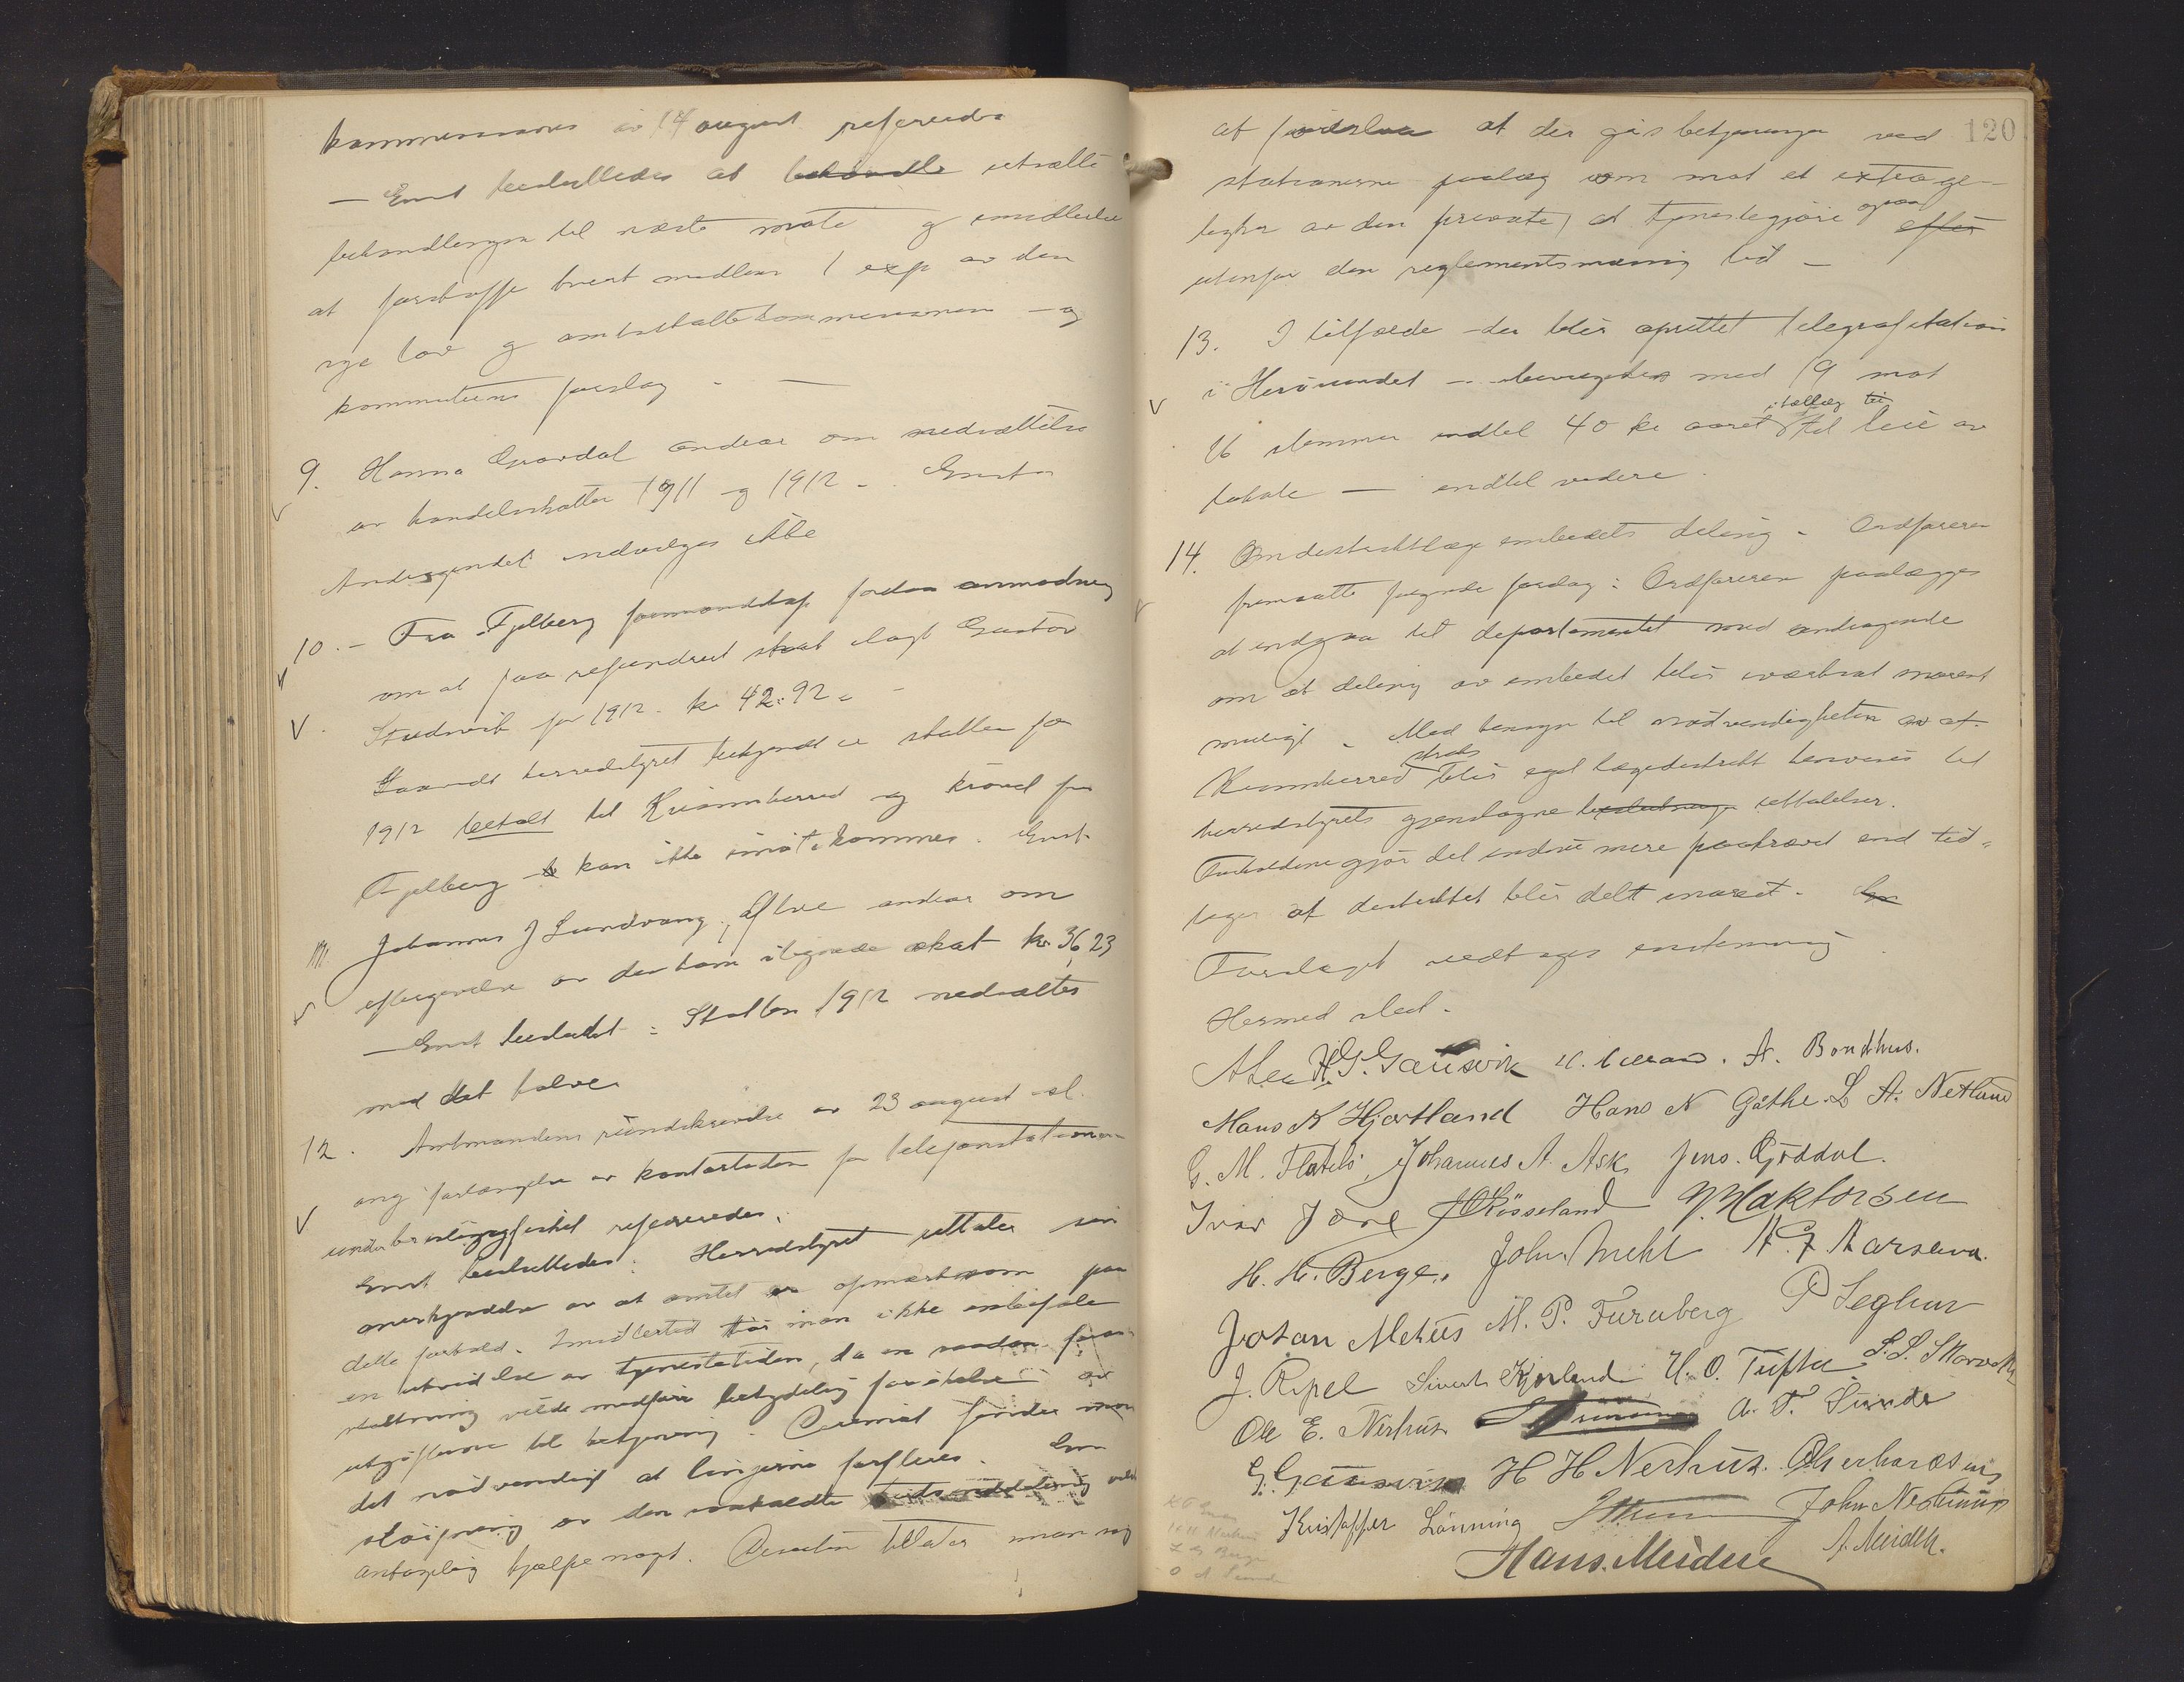 kommissionens av 14 august refereredes
— Enst besluttedes at behandle utsætte
behandlingen til næste møte og imidlertid
at forskaffe hvert medlem 1 exp av den
nye lov og amtsskattekommissionens og
kommiteens forslag. —
9. Hanna Gravdal andrar om nedsættelse
av handelsskatten 1911 og 1912. Enst.
Andragendet indvilges ikke
10. — Fra Fjelberg formandskap forelaa anmodning
om at faa refundert skat ilagt Gustav
Studnvik for 1912. kr 42.92.
Saavidt herredstyret bekjendt er skatten for
1912 betalt til Kvinnherred og kravet fra
Fjelberg kan ikke imøtekommes. Enst.
11. Johannes J Sundvang, Ølve andrar om
eftergivelse av den ham ilignede skat kr 36,23
— Enst besluttet: Skatten 1912 nedsættes
med det halve.
12. Amtmandens rundskrivelse av 23 august sl.
ang forlængelse av kontortiden for telefonstationer
under brislingfisket refereredes.
Enst besluttedes: Herredstyret uttaler sin
anerkjendelse av at amtet er opmerksom paa
dette forhold. Imidlertid tør man ikke anbefale
en utvidelse av tjenestetiden, da en saadan foran-
staltning vilde medføre betydelig forøkelse av
utgifterne til betjening. Derimot finder man
det nødvendigt at linjerne forfleres. En
sløifning av den saakaldte tidsinddeling vilde
antagelig hjælpe noget. Desuten tillater man sig
120
at foreslaa at der gis betjeningen ved
stationerne paalæg om mot et extrage-
byhr av den private at tjenestegjøre ogsaa efter
utenfor den reglementsmæssig tid —
13. I tilfælde der blir oprettet telegrafstation
i Herøsundet — bevilgedes med 19 mot
16 stemmer indtil 40 kr aaret i tillæg til til leie av
lokale — indtil videre.
14. Om distriktslægeembedets deling. Ordføreren
fremsatte følgende forslag: Ordføreren paalægges
at indgaa til departementet med andragende
om at deling av embedet blir iværksat snarest
muligt. Med hensyn til nødvendigheten av at
Kvinnherred straks blir eget lægedistrikt henvises til
herredstyrets gjentagne beslutninger uttalelser.
Forholdene gjør det endnu mere paakrævet end tid-
ligere at distriktet blir delt snarest.
Forslaget vedtages enstemmig
Hermed slut.
G. Gausvik A. Bondhus.
Hans K Hjortland Hans N Gåthe. L A. Netland
G. M. Flatebø, Johannes A. Ask, Jens. Gjøddal.
Ivar Jare Røsseland Haktorsen
H. H. Berge, John Mehl A. G Aarsand.
Johan Mehus M. P. Furuberg P Leghus
J. Ripel Sivert Kjerland H. O. Tufte S. S. Skorve
Ole E. Nerhus A. T. Sunde
G. Gausvik H H Nerhus.
Kristoffer Lønning John Nerhus
Hans. Meidell A. Meidell.